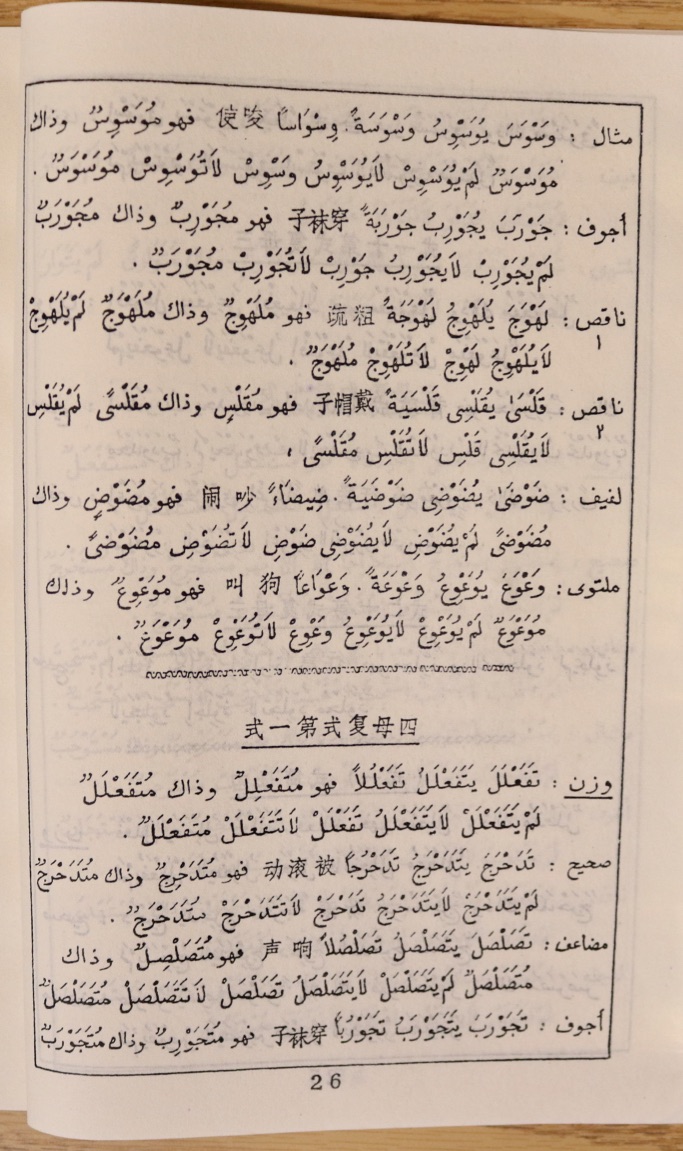 مثال : وَسْوَسَ يُوَسْوِسُ وَسْوَسَةً. وِسْوَاساً 使唆 فهو مُوَسْوِسٌ وذاك
مُوَسْوَسٌ لَمْ يُوَسْوِسْ لاَيُوَسْوِسُ وَسْوِسْ لاَتُوَسْوِسْ مُوَسْوَسٌ .
أجوف : جَوْرَبَ يُجَوْرِبُ جَوْرَبَةً 子袜穿 فهو مُجَوْرِبٌ وذاك مُجَوْرَبٌ
لَمْ يُجَوْرِبْ لاَيُجَوْرِبُ جَوْرِبْ لاَتُجَوْرِبْ مُجَوْرَبٌ .
ناقص : لَهْوَجَ يُلَهْوِجُ لَهْوَجَةً 疏粗 فهو مُلَهْوِجٌ وذاك مُلَهْوَجٌ لَمْ يُلَهْوِجْ
١
لاَيُلَهْوِجُ لَهْوِجْ لاَتُلَهْوِجْ مُلَهْوَجٌ .
ناقص : قَلْسَىٰ يُقَلْسِى قَلْسَيَةً 子帽戴 فهو مُقَلْسٍ وذاك مُقَلْسًى لَمْ يُقَلْسِ
٢
لاَيُقَلْسِى قَلْسِ لاَتُقَلْسِ مُقَلْسًى .
لفيف : ضَوْضَىٰ يُضَوْضِى ضَوْضَيَةً. ضِيضَاءً 闹吵 فهو مُضَوْضٍ وذاك
مُضَوْضًى لَمْ يُضَوْضِ لاَيُضَوْضِى ضَوْضِ لاَتُضَوْضِ مُضَوْضًى .
ملتوى : وَعْوَعَ يُوَعْوِعُ وَعْوَعَةً. وَعْوَاعاً 叫狗 فهو مُوَعْوِعٌ وذاك
مُوَعْوَعٌ لَمْ يُوَعْوِعْ لاَيُوَعْوِعُ وَعْوِعْ لاَتُوَعْوِعْ مُوَعْوَعٌ .
式一第式复母四
وزن : تَفَعْلَلَ يَتَفَعْلَلُ تَفَعْلُلاً فهو مُتَفَعْلِلٌ وذاك مُتَفَعْلَلٌ
لَمْ يَتَفَعْلَلْ لاَيَتَفَعْلَلُ تَفَعْلَلْ لاَتَتَفَعْلَلْ مُتَفَعْلَلٌ .
صحيح : تَدَحْرَجَ يَتَدَحْرَجُ تَدَحْرُجاً 动滚被 فهو مُتَدَحْرِجٌ وذاك مُتَدَحْرَجٌ
لَمْ يَتَدَحْرَجْ لاَيَتَدَحْرَجُ تَدَحْرَجْ لاَتَتَدَحْرَجْ مُتَدَحْرَجٌ .
مضاعف : تَصَلْصَلَ يَتَصَلْصَلُ تَصَلْصُلاً 声响 فهو مُتَصَلْصِلٌ وذاك
مُتَصَلْصَلٌ لَمْ يَتَصَلْصَلْ لاَيَتَصَلْصَلُ تَصَلْصَلْ لاَتَتَصَلْصَلْ مُتَصَلْصَلٌ
أجوف : تَجَوْرَبَ يَتَجَوْرَبُ تَجَوْرُباً 子袜穿 فهو مُتَجَوْرِبٌ وذاك مُتَجَوْرَبٌ
26